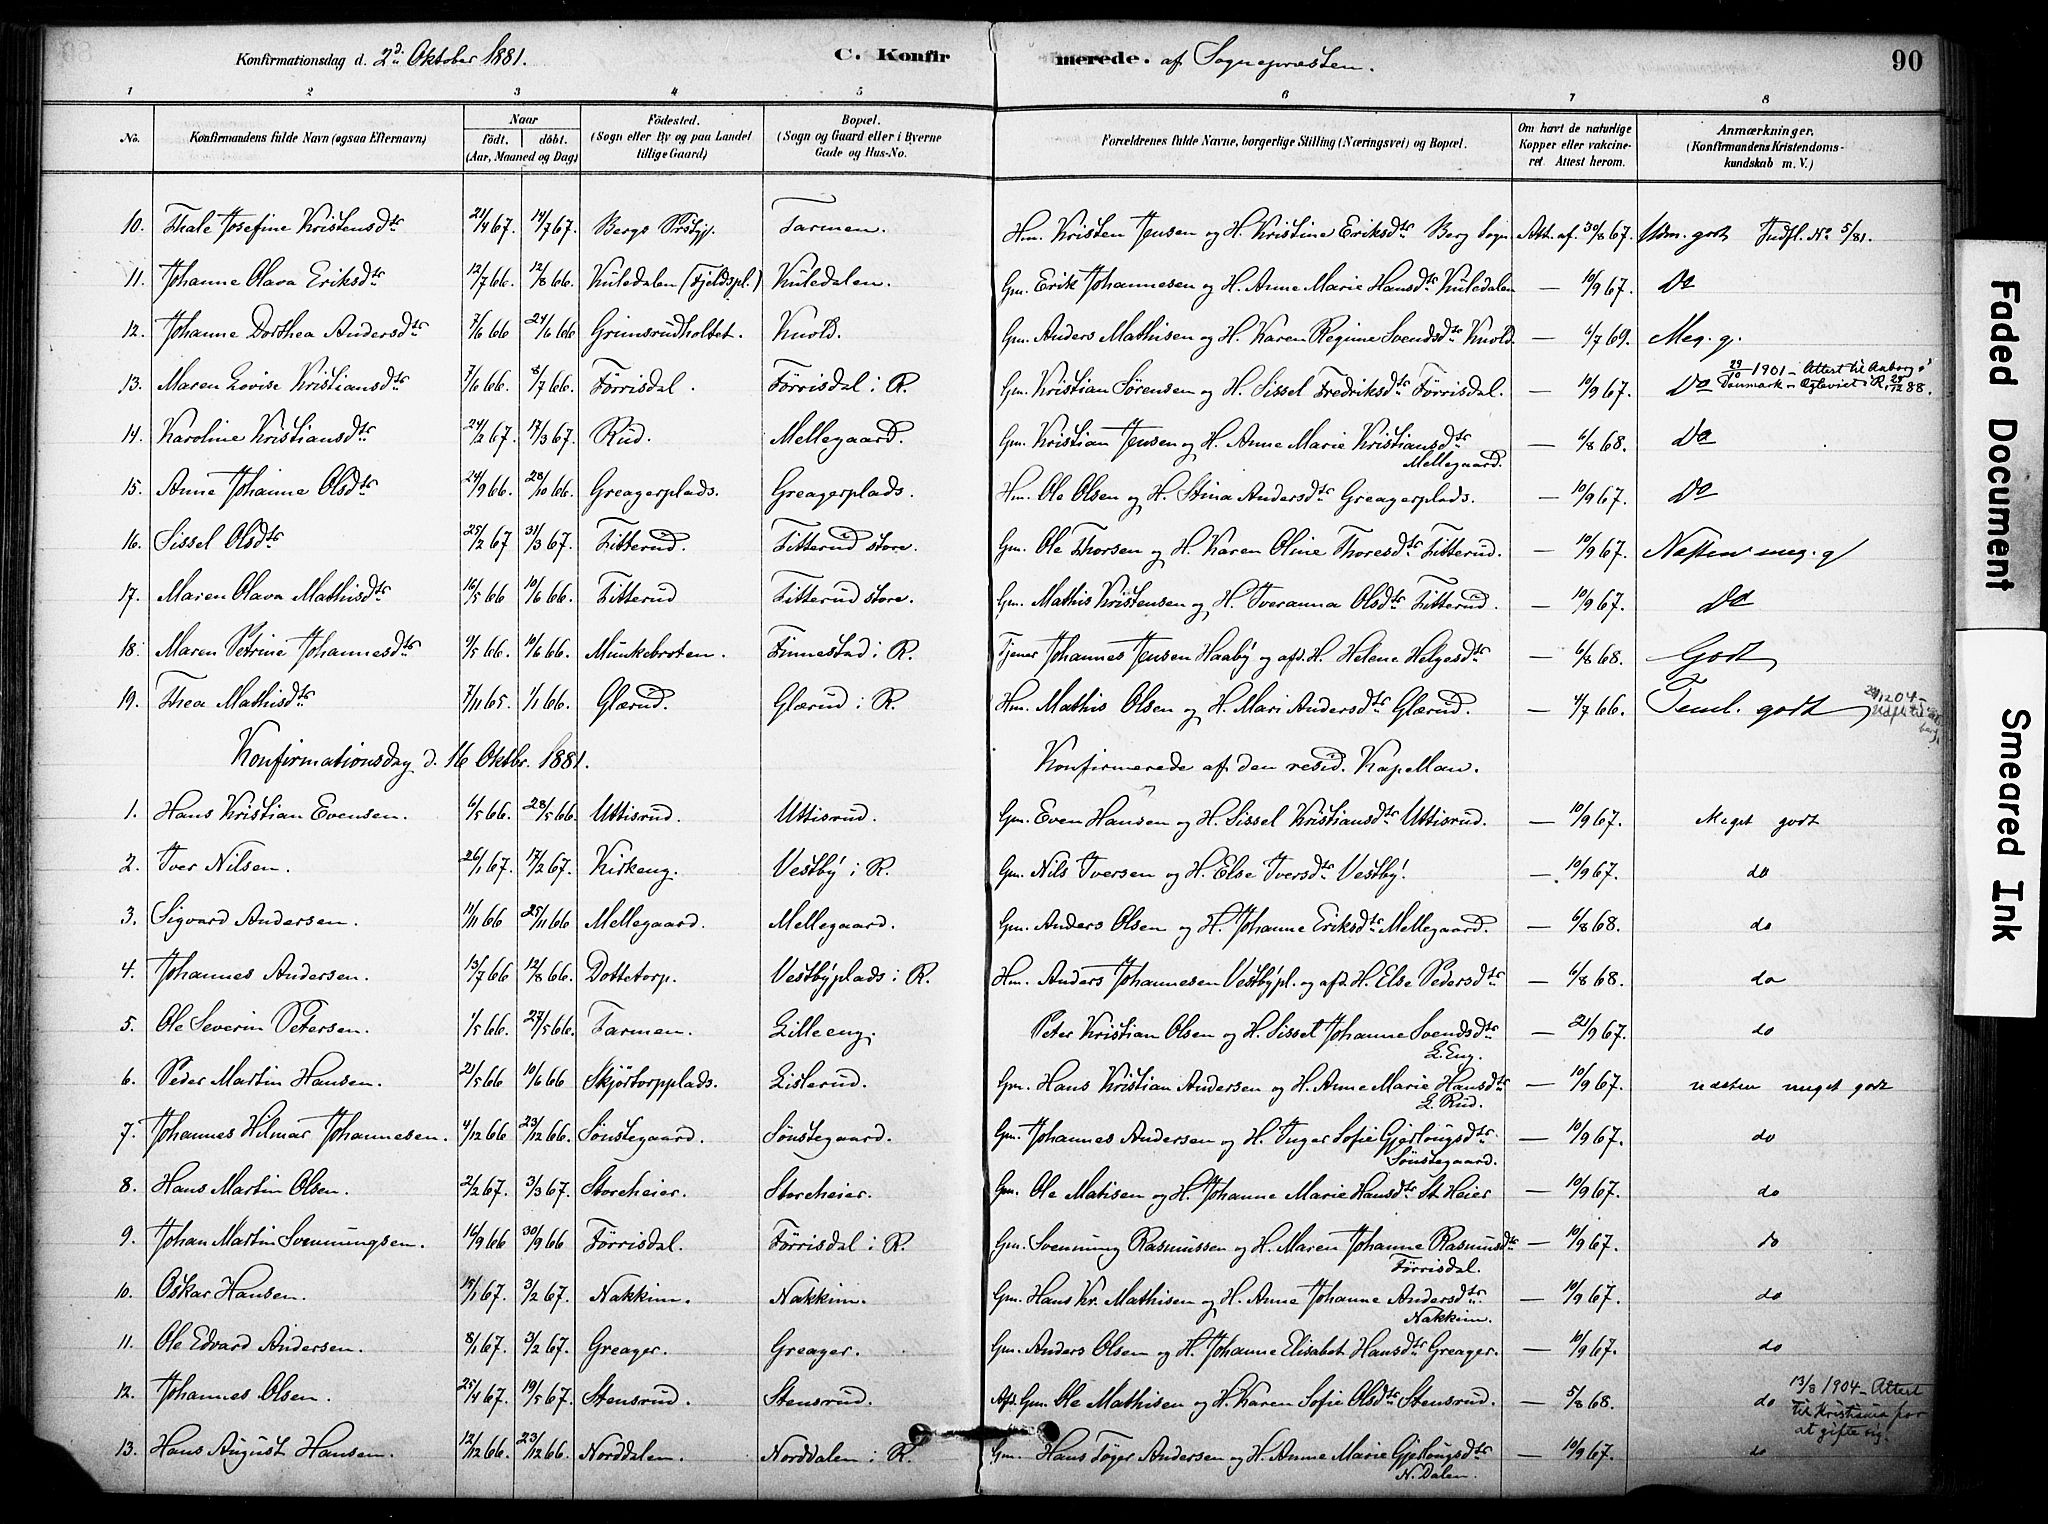 Konfirmationsdag d. 2den Oktober 1881. C. Konfirmerede. af Sognepræsten. 90
1 2 3 4 5 6 7 8
No. Konfirmandens fulde Navn (ogsaa Efternavn) Naar født. døbt. (Aar, Maaned og Dag) Fødested. (Sogn eller By og paa Landet tillige Gaard) Bopæl. (Sogn og Gaard eller i Byerne Gade og Hus-No. Forældrenes fulde Navne, borgerlige Stilling (Næringsvei) og Bopæl. Om havt de naturlige Kopper eller vakcineret Attest herom. Anmærkninger. (Konfirmandens Kristendomskundskab m. V.)
10. Thale Josefine Kristensdtr 21/4 67. 14/7 67. Bergs Prstgj. Tarmen. Hm. Kristen Jensen og H. Kristine Eriksdtr Berg Sogn. Att. af. 30/8 67. Udm. godt Indfl. No 5/81.
11. Johanne Olava Eriksdtr 12/7 66. 12/8 66. Kuledalen (Fjeldspl.) Kuledalen. Gm. Erik Johannesen og H. Anne Marie Hansdtr Kuledalen — 10/9 67. Do
12. Johanne Dorthea Andersdtr 7/6 66 24/6 66 Grimsrudholtet. Knold. Gm. Anders Mathisen og H. Karen Regine Svendsdtr Knold. — 6/7 69. Meg. g.
13. Maren Lovise Kristiansdtr 7/6 66. 8/7 66. Førrisdal. Førrisdal i R. Gm. Kristian Sørensen og H. Sissel Fredriksdtr Førrisdal. — 10/9 67. Do 29/10 1901 – Attest til Aaborg i Danmark – Ogleviet i R. 28/12 88.
14. Karoline Kristiansdtr 24/2 67. 17/3 67. Rud. Mellegaard. Gm. Kristian Jensen og H. Anne Marie Kristiansdtr Mellegaard. — 6/8 68. Do
15. Anne Johanne Olsdtr 24/9 66. 28/10 66. Greagerplads. Greagerplads. Hm. Ole Olsen og H. Stina Andersdtr Greagerplads. — 10/9 67. Do
16. Sissel Olsdtr 25/2 67 31/3 67. Fitterud. Fitterud store. Gm. Ole Thorsen og H. Karen Oline Thoresdtr Fitterud. — 10/9 67. Næsten meg. g
17. Maren Olava Mathisdtr 16/5 66 10/6 66. Fitterud Fitterud store. Gm. Mathis Kristensen og H. Iveranna Olsdtr Fitterud. — 10/9 67. Do
18. Maren Petrine Johannesdtr 9/5 66. 10/6 66. Munkebroten. Finnestad i R. Tjener Johannes Jensen Haaby og afd. H. Helene Helgesdtr — 6/8 68. Godt
19. Thea Mathisdtr 7/11 65. 1/1 66. Glærud. Glærud i R. Hm. Mathis Olsen og H. Mari Andersdtr Glærud. — 4/7 66. Teml. godt
Konfirmationsdag d. 16 Oktbr. 1881. Konfirmerede af den resid. Kapellan.
1. Hans Kristian Evensen. 6/5 66. 28/5 66. Uttisrud. Uttisrud. Gm. Even Hansen og H. Sissel Kristiansdtr Uttisrud. — 10/9 67. Meget godt
2. Iver Nilsen. 26/1 67. 17/2 67. Kirkeng. Vestby i R. Gm. Nils Iversen og H. Else Iversdtr Vestby. — 10/9 67. do
3. Sigvard Andersen. 11/11 66. 25/11 66 Mellegaard. Mellegaard. Gm. Anders Olsen og H. Johanne Eriksdtr Mellegaard. — 6/8 68. do
4. Johannes Andersen. 13/7 66 12/8 66. Dottetorp. Vestbyplads i R. Hm. Anders Johannesen Vestbypl. og afd. H. Else Pedersdtr — 6/8 68. do
5. Ole Severin Petersen. 1/5 66. 27/5 66. Tarmen. Lilleeng. Peter Kristian Olsen og H. Sissel Johanne Svendsdtr L. Eng. — 21/9 67. do
6. Peder Martin Hansen. 21/5 66 10/6 66 Skjørtorpplads. Lislerud. Gm. Hans Kristian Andersen og H. Anne Marie Hansdtr L. Rud. — 10/9 67. næsten meget godt
7. Johannes Hilmar Johannesen. 4/12 66 23/12 66. Sønstegaard. Sønstegaard. Gm. Johannes Andersen og H. Inger Sofie Gjerlougsdtr Sønstegaard. — 10/9 67. do
8. Hans Martin Olsen. 2/2 67. 3/3 67. Storeheier. Storeheier. Gm. Ole Matisen og H. Johanne Marie Hansdtr St. Heier — 10/9 67. do
9. Johan Martin Svenningsen. 16/9 66 30/9 66 Førrisdal. Førrisdal i R. Gm. Svenning Rasmussen og H. Maren Johanne Rasmusdtr Førrisdal. — 10/9 67. do
10. Oskar Hansen. 15/1 67. 3/2 67. Nakkim. Nakkim. Gm. Hans Kr. Mathisen og H. Anne Johanne Andersdtr Nakkim. — 10/9 67. do
11. Ole Edvard Andersen. 8/1 67. 3/2 67. Greager. Greager. Gm. Anders Olsen og H. Johanne Elisabet Hansdtr Greager. — 10/9 67. do
12. Johannes Olsen. 25/4 67. 19/5 67. Stensrud. Stensrud. Afd. Gm. Ole Mathisen og H. Karen Sofie Olsdtr Stensrud. — 5/8 68. do 13/8 1904 – Attest til Kristiania for at gifte sig.
13. Hans August Hansen. 12/12 66. 23/12 66. Norddalen. Norddalen i R. Gm. Hans Tøger Andersen og H. Anne Marie Gjerlougsdtr N. Dalen. — 10/9 67. do
Faded Document
Smeared Ink